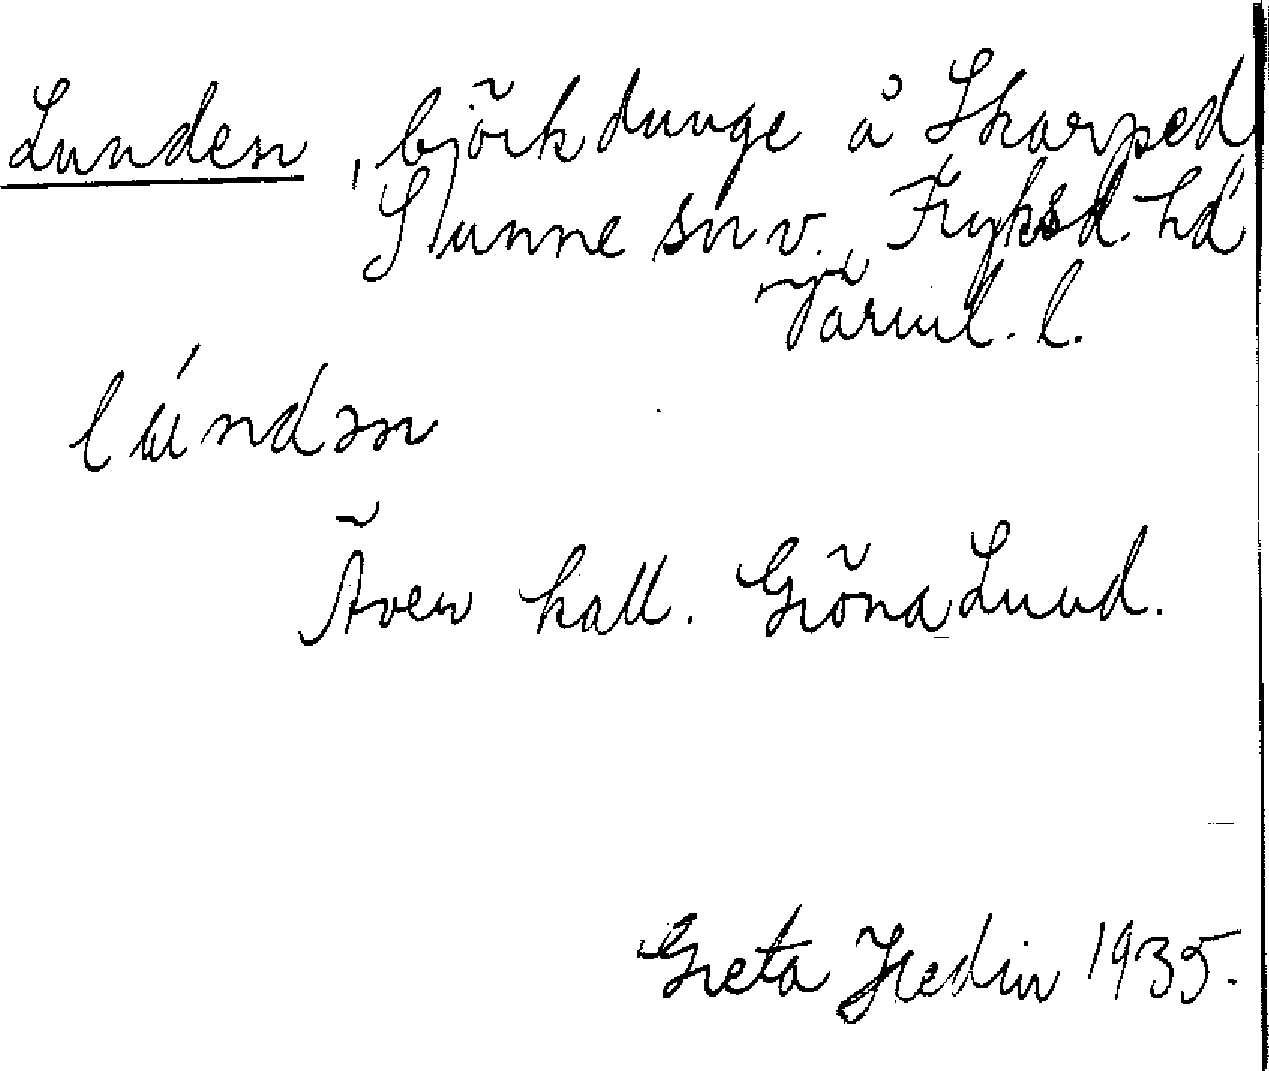 Lunden, björkdunge å Skarped
Sunne sn v. Fryksd. hd
Värml. l.
lúndən
Även kall. Gröna Lund.
Greta Hedin 1935.